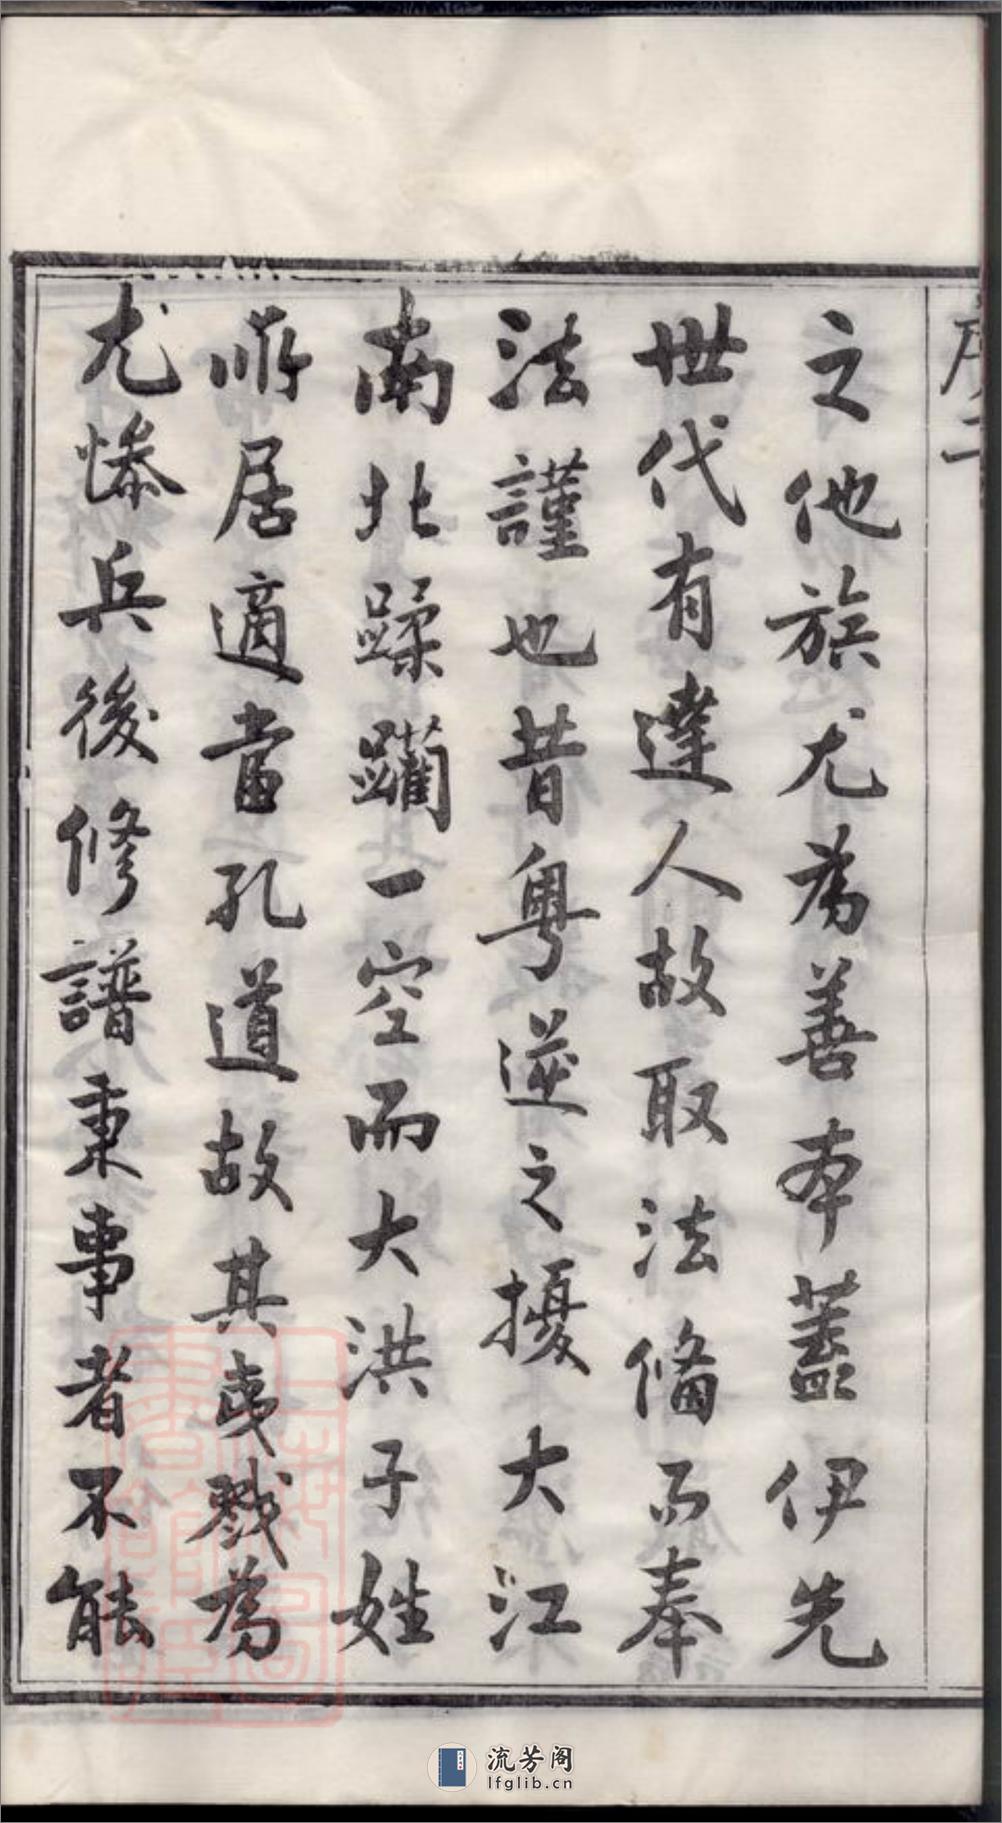 序二
之他族尤為善本蓋伊先
世代有達人故取法備而奉
法謹也昔粵逆之擾大江
南北蹂躪一空而大洪子姓
所居適當孔道故其夷戮為
尤慘兵後修譜秉事者不能
流芳阁
lfglib.cn